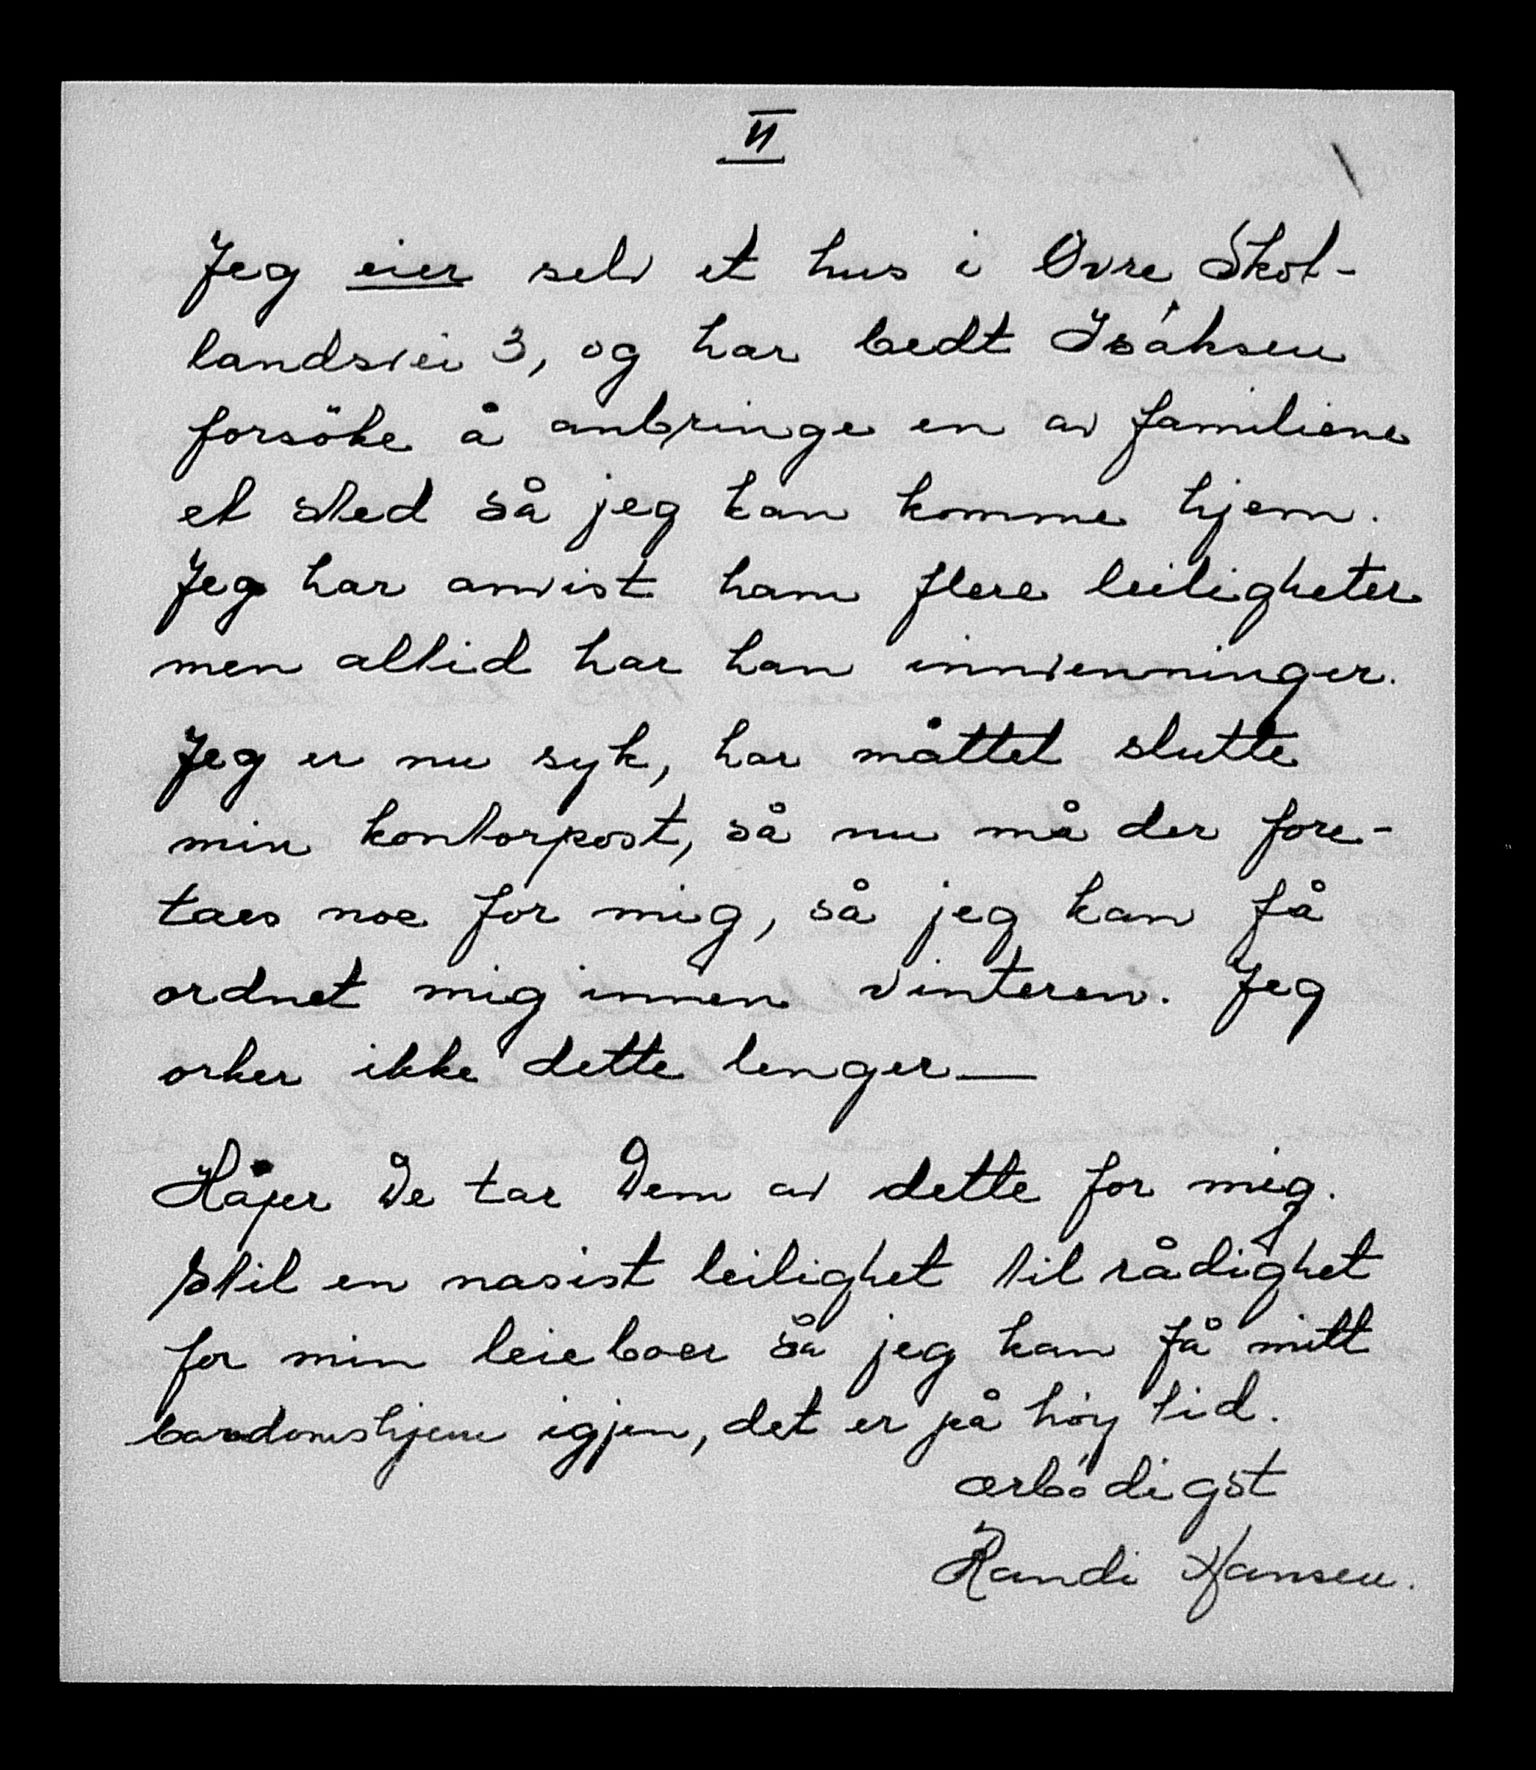 II
Jeg eier selv et hus i Øvre Skot-
landsvei 3, og har bedt Isaksen
forsöke å anbringe en av familiene
et sted så jeg kan komme hjem.
Jeg har anvist ham flere leiligheter
men alltid har han innvenninger.
Jeg er nu syk, har måttet slutte
min kontorpost, så nu må der fore-
taes noe for mig, så jeg kan få
ordnet mig innen vinteren. Jeg
orker ikke dette lenger—
Håper De tar Dem av dette for mig.
Stil en nasist leilighet til rådighet
for min leieboer så jeg kan få mitt
barndomshjem igjen, det er på høy tid.
ærbödigst
Randi Hansen.